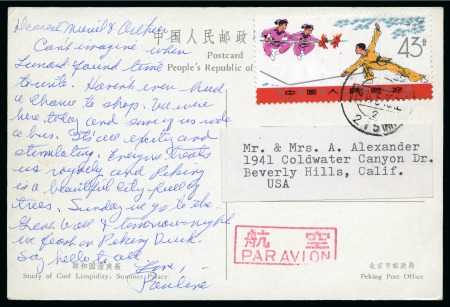 Dearest Muriel & Arthur
Can't imagine when
Leonard found time
to write. Haven't even had
a chance to shop. We were
here today and some of us rode
a bus. It's all exciting and
stimulating. Everyone treats
us royally and Peking
is a beautiful city full of
trees. Sunday we go to the
Great Wall & tomorrow night
we feast on Peking Duck.
Say hello to all
Love,
Pauline
中国人民邮政
Postcard
People's Republic of
43分
中国人民邮政
Mr. & Mrs. A. Alexander
1941 Coldwater Canyon Dr.
Beverly Hills, Calif.
USA
航空
PAR AVION
颐和园澄爽斋
Study of Cool Limpidity, Summer Palace
北京市邮政局
Peking Post Office